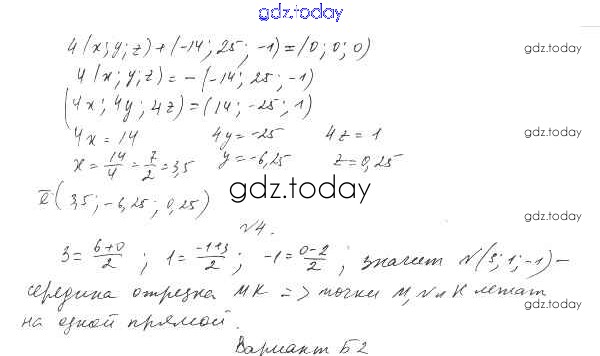 gdz.today
4(x;y;z)+(-14;25;-1)=(0;0;0)
gdz.today
4(x;y;z)=-(-14;25;-1)
(4x;4y;4z)=(14;-25;1)
4x=14 4y=-25 4z=1
gdz.today
x=14/4=7/2=3,5 y=-6,25 z=0,25
gdz.today
ē(3,5;-6,25;0,25)
gdz.today
gdz.today
№4.
3=(6+0)/2; 1=(-1+3)/2; -1=(0-2)/2; значит N(3;1;-1)-
gdz.today
середина отрезка MK => точки M, N и K лежат
на одной прямой.
gdz.today
Вариант Б2